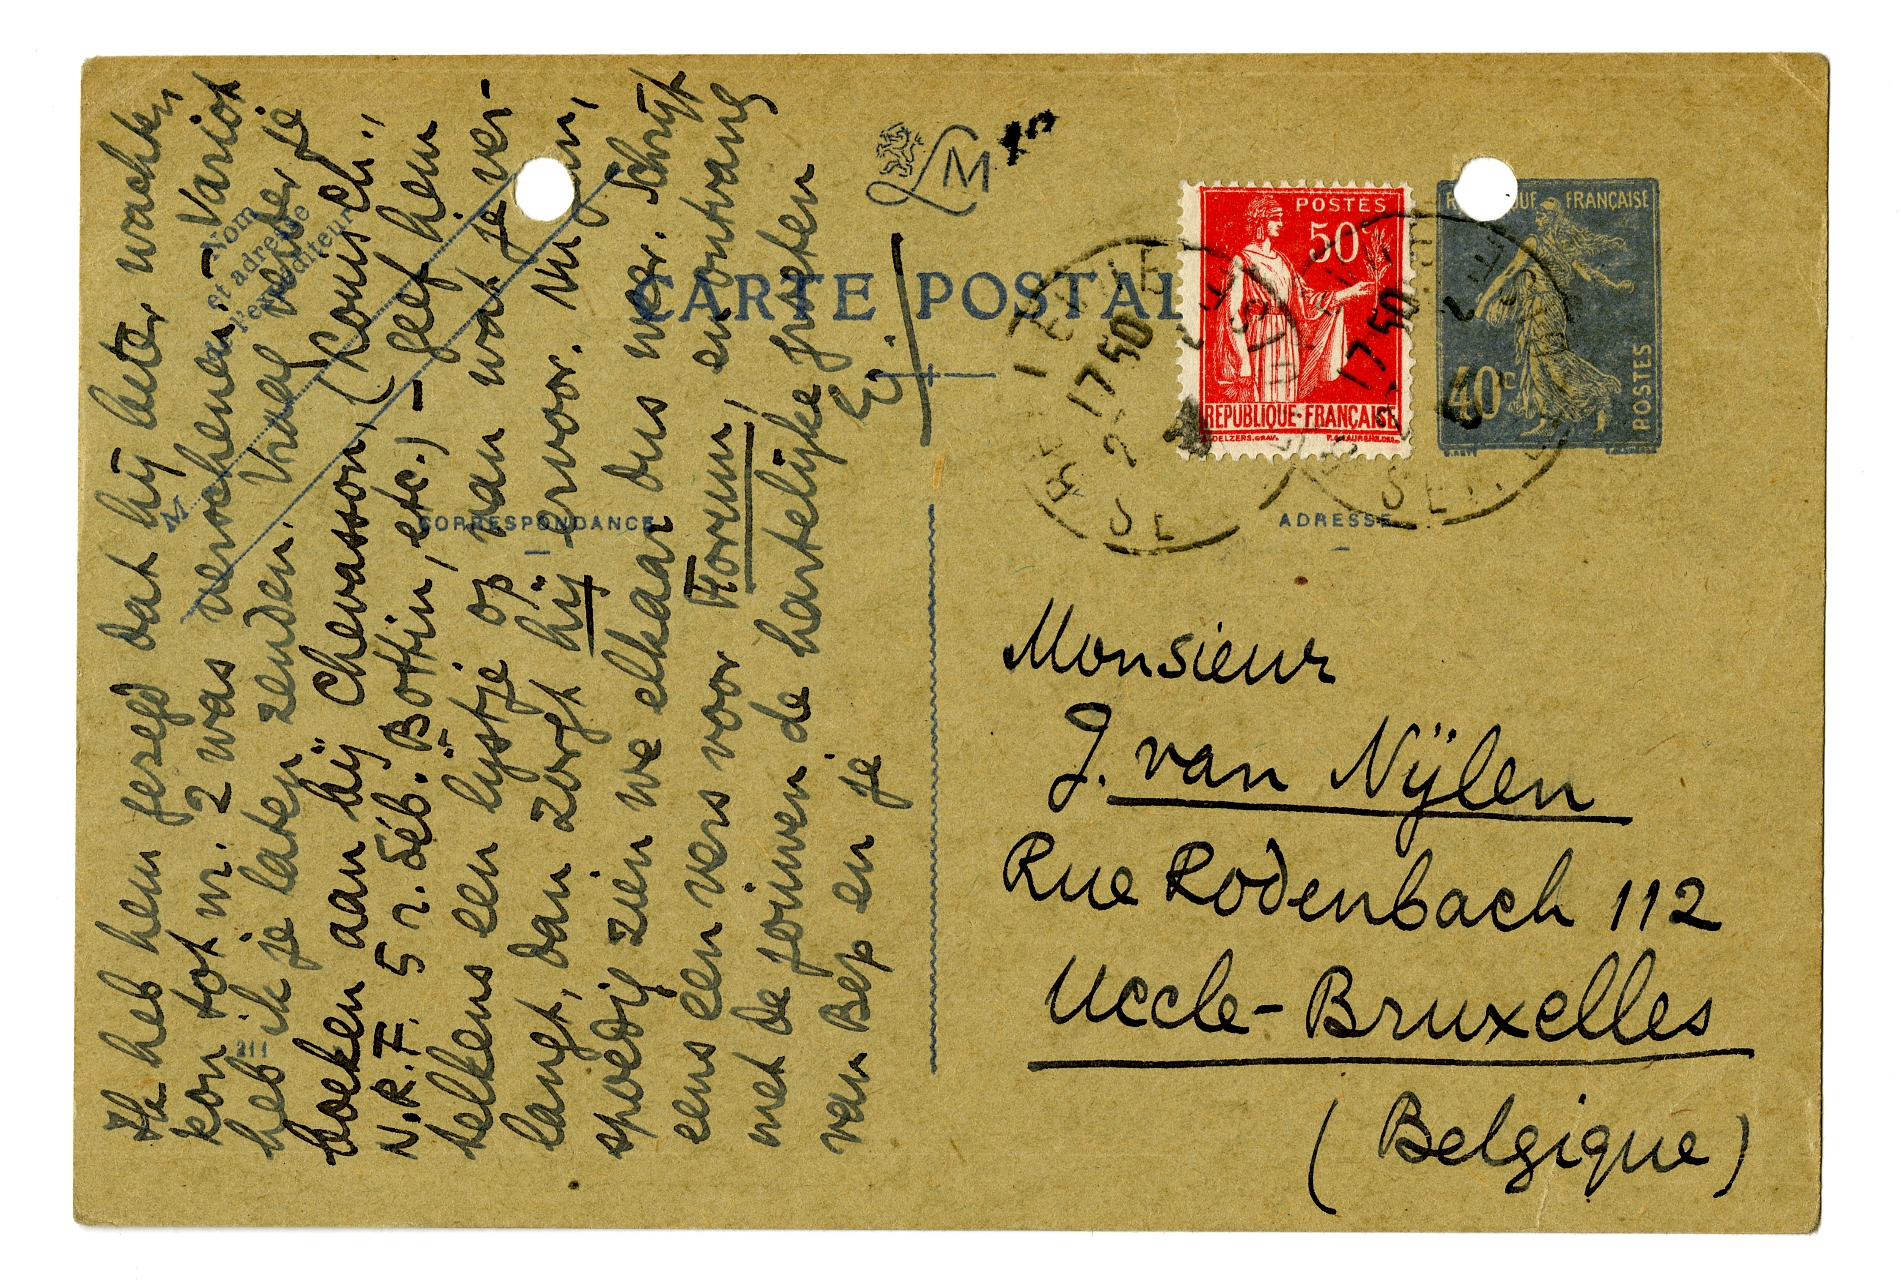 Ik heb hem gezegd dat hij beter wachten
kon tot nr. 2 was verschenen. – Variot
heb ik je laten zenden. Vraag verder je
boeken aan bij Chevasson, (Louis Ch.,
N.R.F. 5 r. Séb. Bottin, etc.) – geef hem
telkens een lijstje op van wat je ver-
langt, dan zorgt hij ervoor.
spoedig zien we elkaar dus weer. Schrijf
eens een vers voor Forum, en ontvang
met de jouwen de hartelijke groeten
van Bep en je
E.
Nom
et adresse
de l'expéditeur
M
211
LM
CARTE POSTALE
CORRESPONDANCE
ADRESSE
POSTES
50c
REPUBLIQUE·FRANÇAISE
RÉPUBLIQUE FRANÇAISE
40c
POSTES
17 50
17 50
Monsieur
J. van Nÿlen
Rue Rodenbach 112
Uccle-Bruxelles
(Belgique)